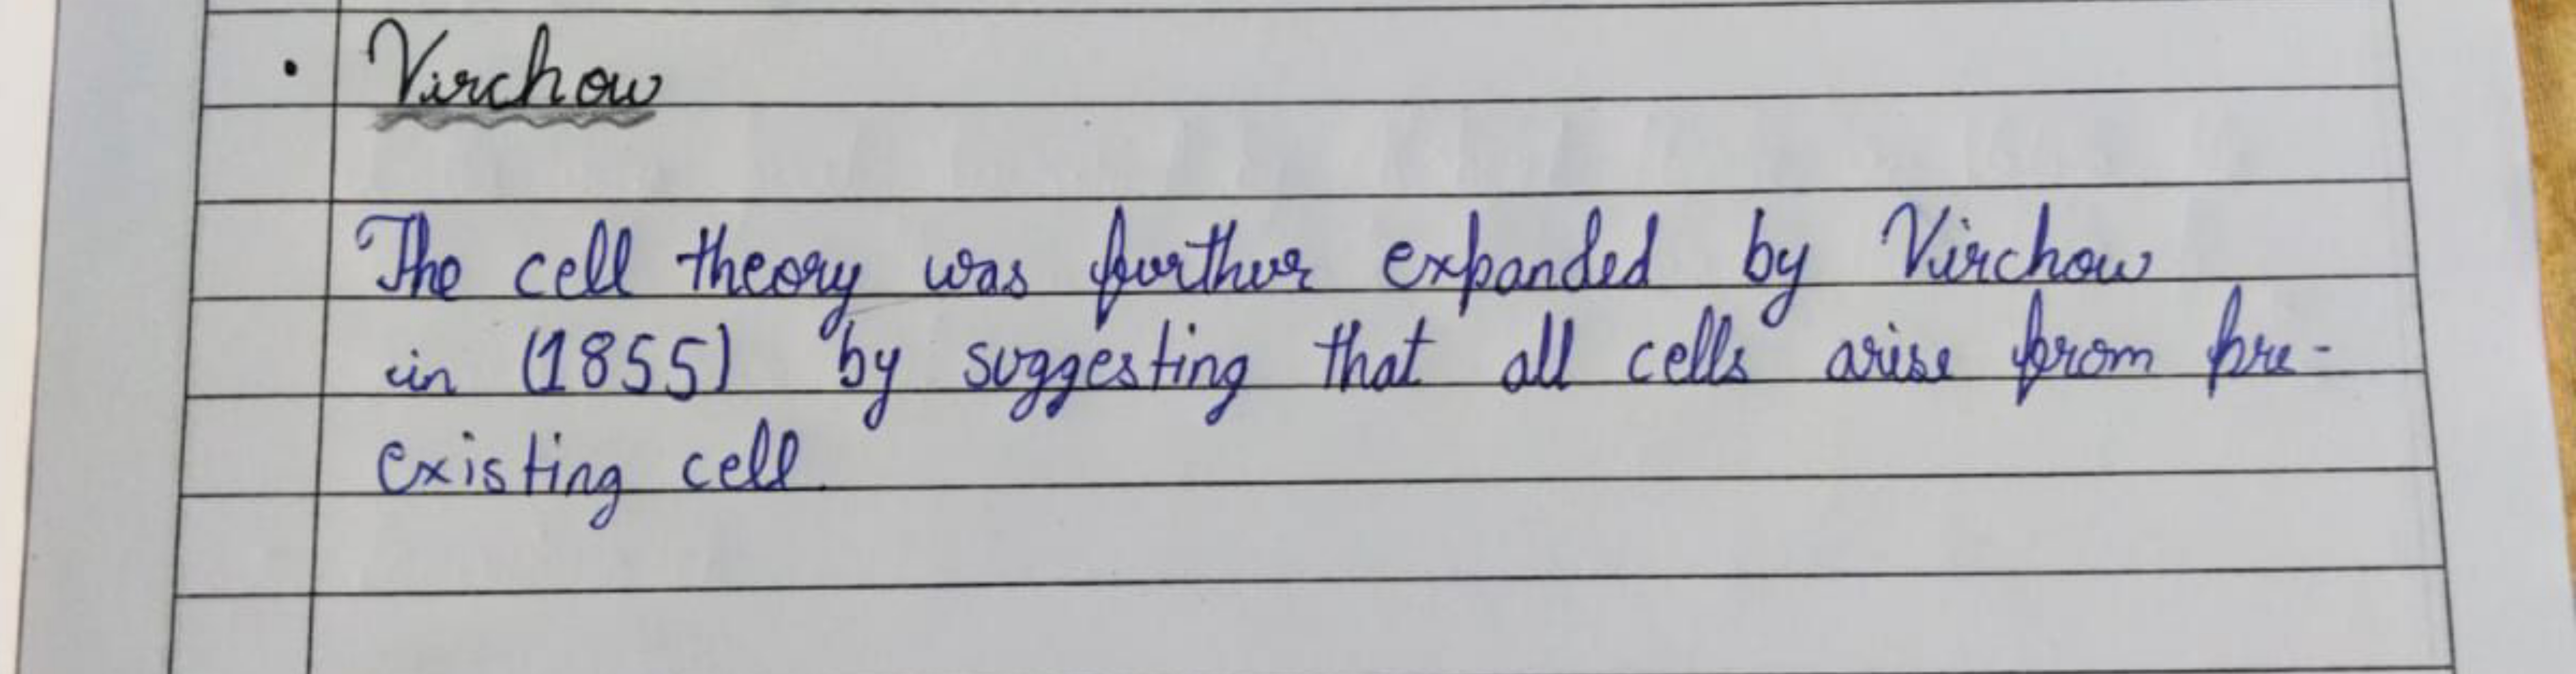 • Virchow
The cell theory was further expanded by Virchow
in (1855) by suggesting that all cells arise from pre-
existing cell.